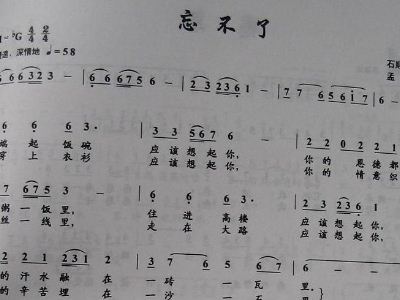 忘不了
1=♭G 4/4 2/4
深情地 ♩=58
6 6 6 3 2 3 - | 6 6 6 7 5 6 - | 2 3 2 3 6 1 - | 7 7 6 5 6 1 7
6 6 3· | 3 3 5 6 7 6 - | 2 2 0 2 1
端起饭碗 应该想起你， 你的恩德都
穿上衣衫 应该想起你， 你的情意织
6 7 5 3 - | 6· 6 6 3· | 2 3 2 3 6 1 -
粥一饭里， 住进高楼 应该想起你，
丝一线里， 走在大路 应该想起你，
2 1 2 3 2 1 2 | 3 7 6 5 | 6 6 -
的汗水融在 一砖一瓦 里。
的辛苦埋在 一沙一石